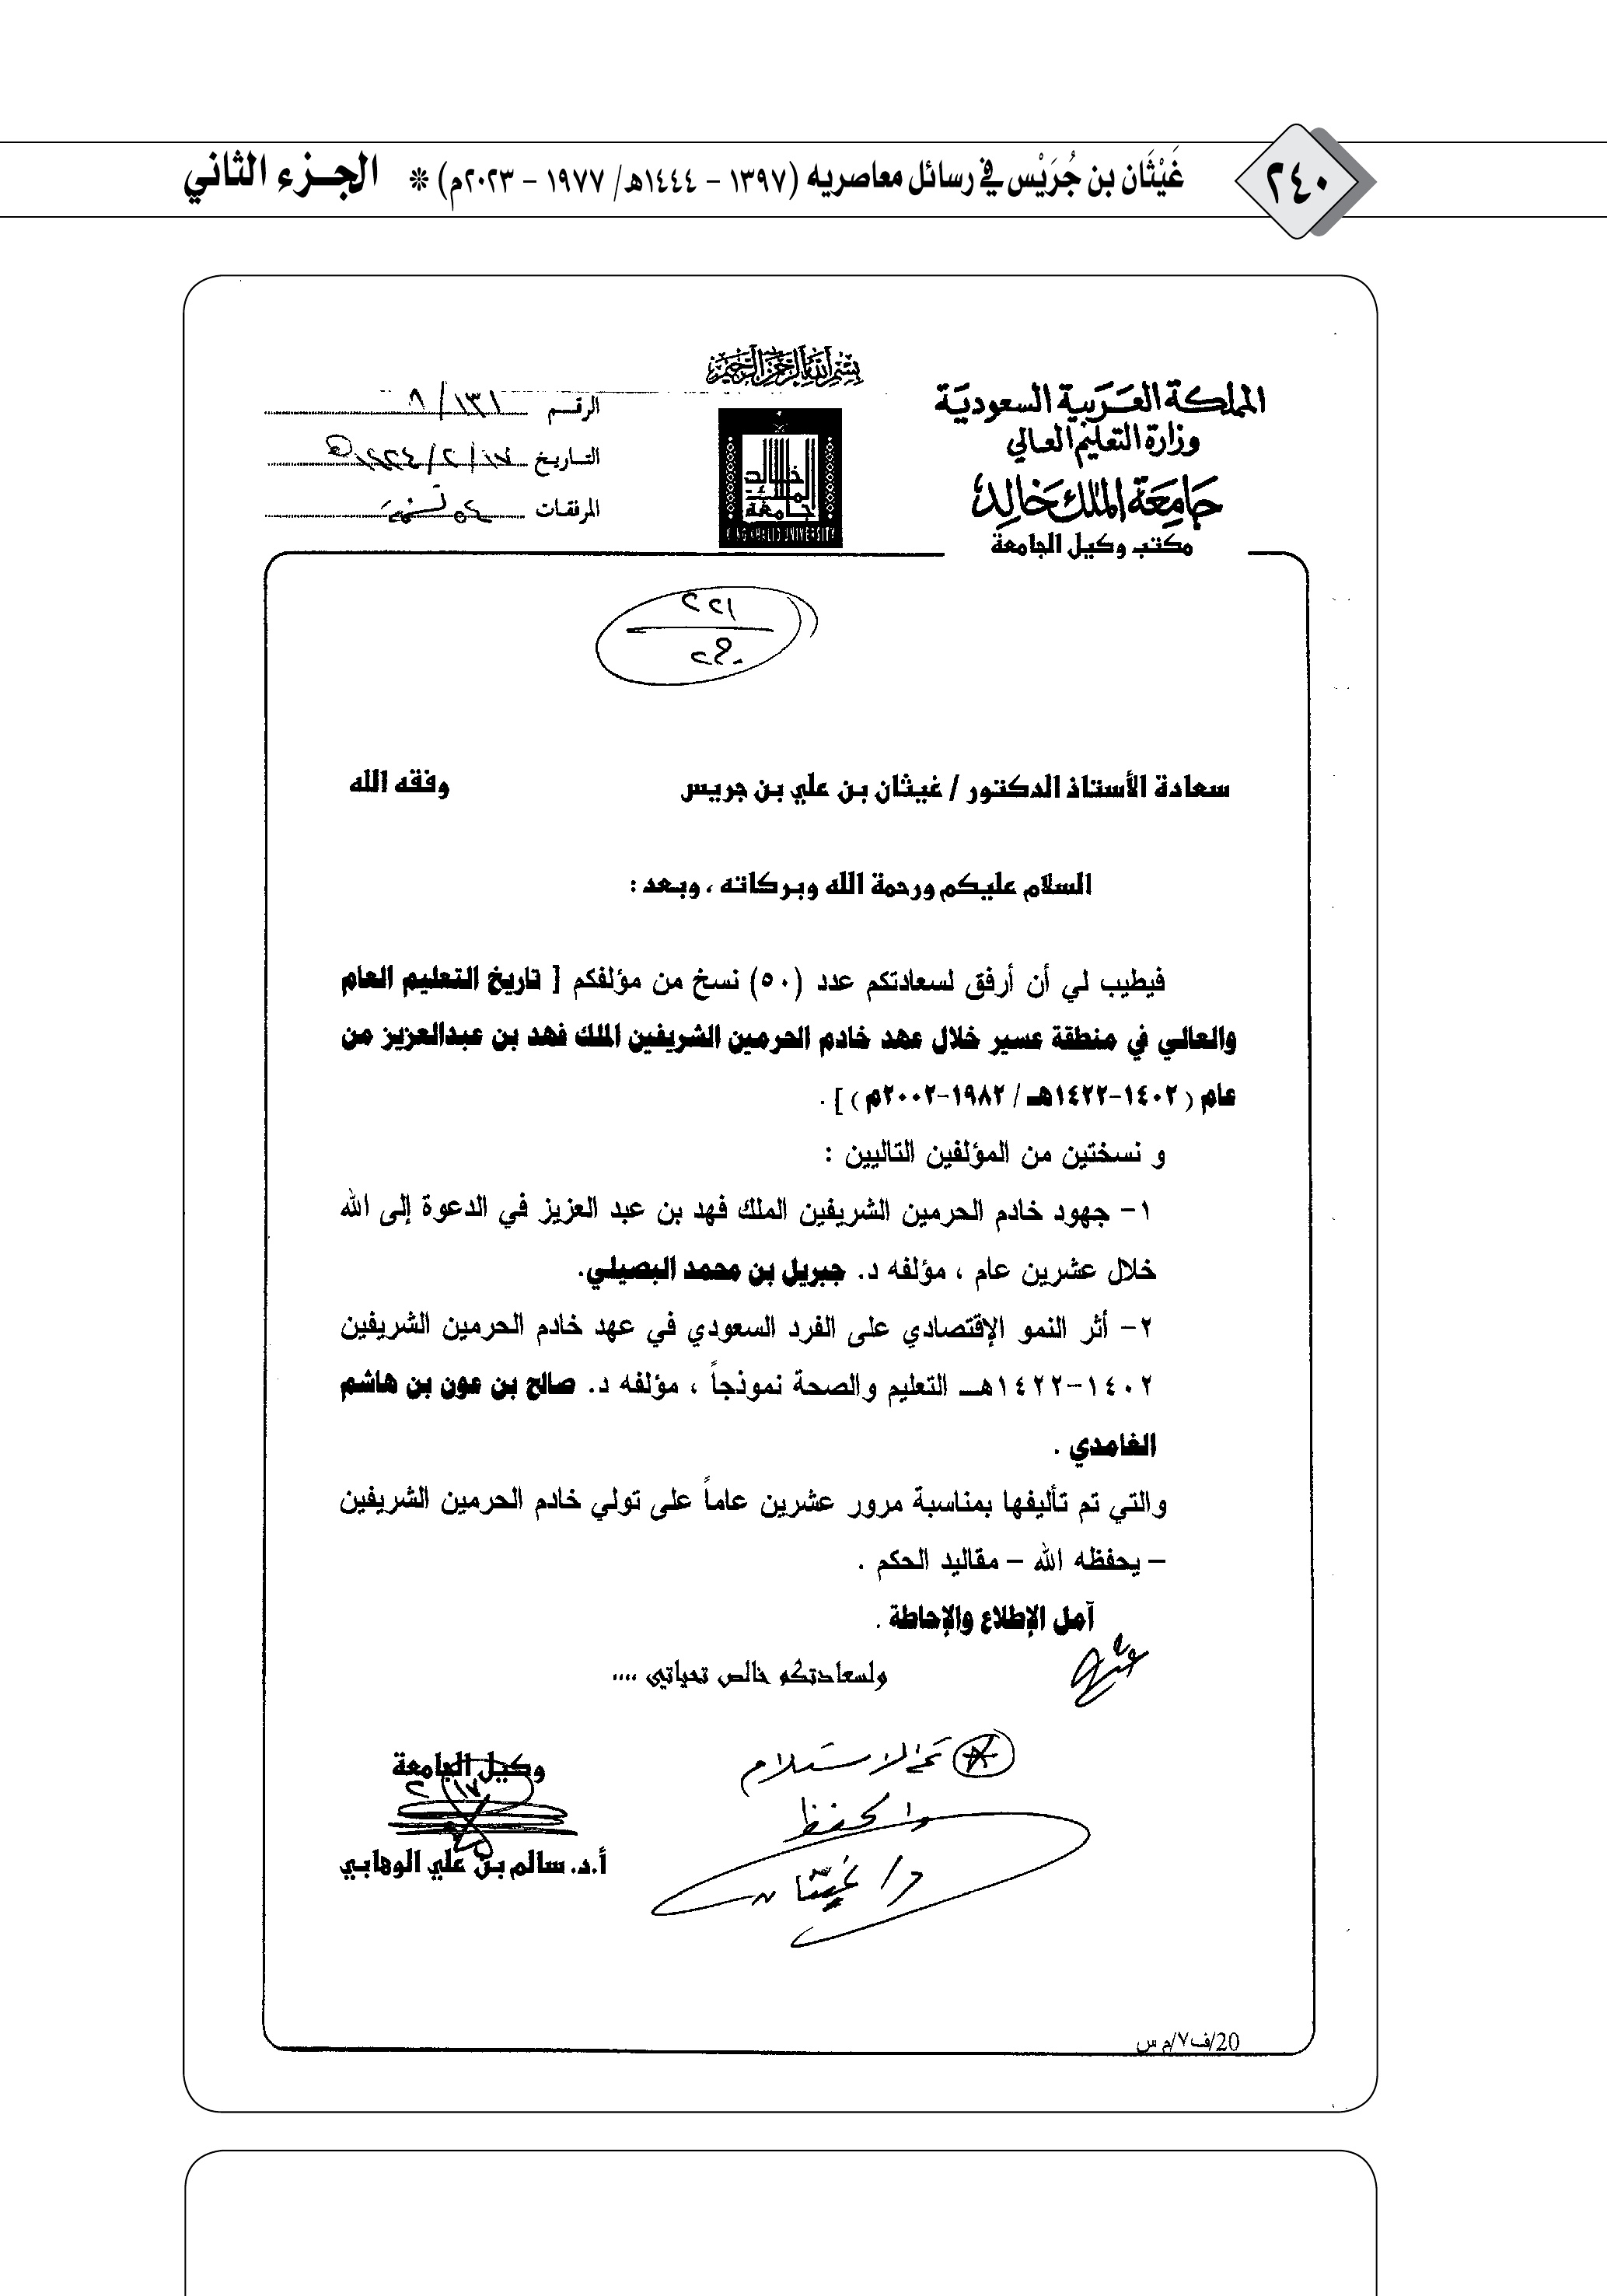 ٢٤٠
غَيْثَان بن جُرَيْس في رسائل معاصريه (١٣٩٧ - ١٤٤٤هـ/ ١٩٧٧ - ٢٠٢٣م) * الجـزء الثاني
بسم الله الرحمن الرحيم
المملكة العربية السعودية
وزارة التعليم العالي
جامعة الملك خالد
مكتب وكيل الجامعة
خالد
الملك
جامعة
KING KHALID UNIVERSITY
الرقـم ٨/١٣١
التـاريخ
المرفقات
٢٢١
سعادة الأستاذ الدكتور / غيثان بن علي بن جريس وفقه الله
السلام عليكم ورحمة الله وبركاته ، وبعد :
فيطيب لي أن أرفق لسعادتكم عدد (٥٠) نسخ من مؤلفكم [ تاريخ التعليم العام
والعالي في منطقة عسير خلال عهد خادم الحرمين الشريفين الملك فهد بن عبدالعزيز من
عام ( ١٤٠٢-١٤٢٢هـ / ١٩٨٢-٢٠٠٢م ) ] .
و نسختين من المؤلفين التاليين :
١- جهود خادم الحرمين الشريفين الملك فهد بن عبد العزيز في الدعوة إلى الله
خلال عشرين عام ، مؤلفه د. جبريل بن محمد البصيلي.
٢- أثر النمو الإقتصادي على الفرد السعودي في عهد خادم الحرمين الشريفين
١٤٠٢-١٤٢٢هـ التعليم والصحة نموذجاً ، مؤلفه د. صالح بن عون بن هاشم
الغامدي .
والتي تم تأليفها بمناسبة مرور عشرين عاماً على تولي خادم الحرمين الشريفين
- يحفظه الله - مقاليد الحكم .
آمل الإطلاع والإحاطة .
ولسعادتكم خالص تحياتي ....
تم الاستلام
والحفظ
د/ غيثان
وكيل الجامعة
٢/١٧
أ.د. سالم بن علي الوهابي
20/ف٧/م س